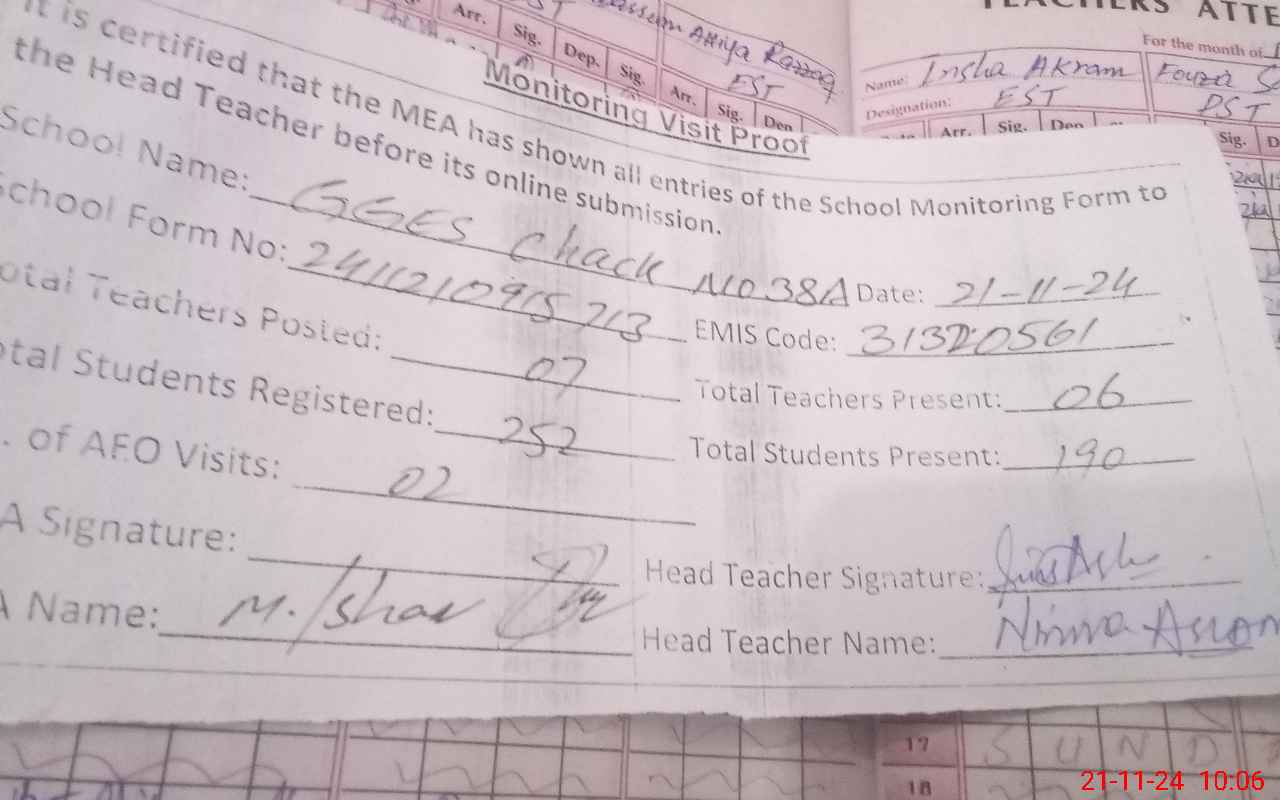 Arr. Sig. Dep. Sig. Arr. Sig. Dep
Attiya Razzaq
EST
TEACHERS ATTE
For the month of
Name: Insha Akram Fouzia
Designation: EST PST
Arr. Sig. Dep Sig. D
Monitoring Visit Proof
It is certified that the MEA has shown all entries of the School Monitoring Form to
the Head Teacher before its online submission.
School Name: GGES Chack No 38A Date: 21-11-24
School Form No: 2411210915713 EMIS Code: 31320561
otal Teachers Posted: 07 Total Teachers Present: 06
otal Students Registered: 252 Total Students Present: 190
. of AEO Visits: 02
A Signature: Head Teacher Signature:
A Name: M. Ishaq Head Teacher Name: Nimra
17 S U N D
18
21-11-24 10:06